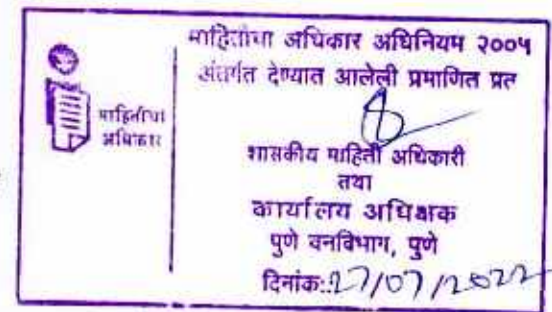 माहितीचा अधिकार अधिनियम २००५
अंतर्गत देण्यात आलेली प्रमाणित प्रत
माहितीचा
अधिकार
शासकीय माहिती अधिकारी
तथा
कार्यालय अधिक्षक
पुणे वनविभाग, पुणे
दिनांक:.27/07/2022